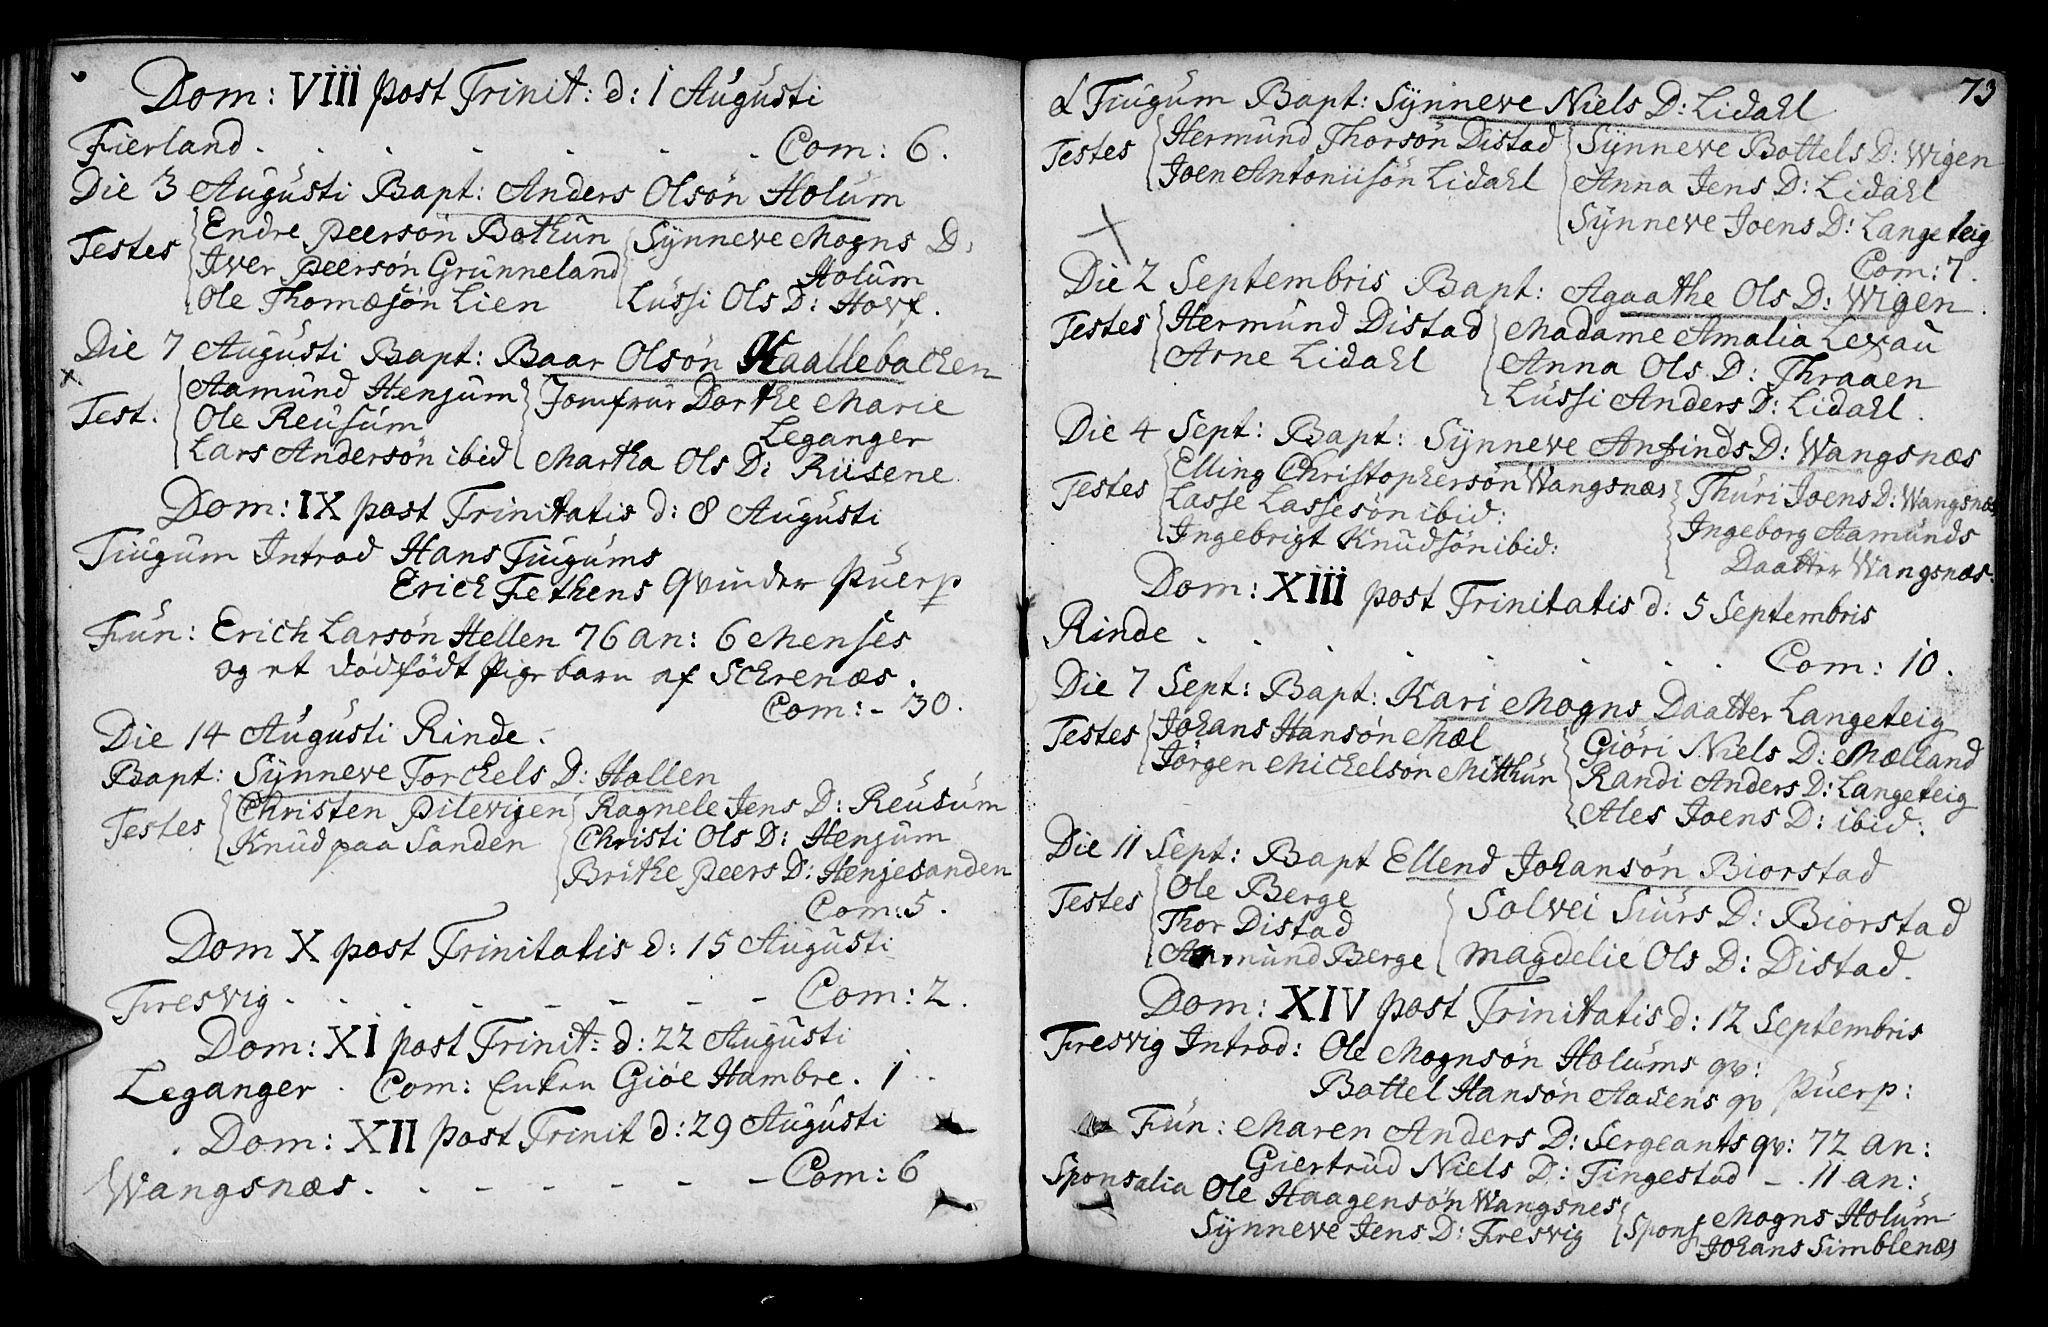 Dom: VIII post Trinit: d: 1 Augusti
Fierland . . . . . . Com: 6.
Die 3 Augusti Bapt: Anders Olsøn Holum
Testes Endre Peersøn Bothun Synneve Mogns D:
Iver Peersøn Grunneland Holum
Ole Thomæsøn Lien Lussi Ols D: Hovf.
Die 7 Augusti Bapt: Baar Olsøn Kaallebacken
Test. Aamund Henjum Jomfrur Dorthe Marie
Ole Reusum Leganger
Lars Andersøn ibid Martha Ols D: Riisene
Dom: IX post Trinitatis d: 8 Augusti
Tiugum Introd Hans Tiugums
Erich Fethens Qvinder Puerp
Fun: Erich Larsøn Hellen 76 an: 6 Menses
og et dødfødt Pige barn af Schrenæs.
Com: - 30.
Die 14 Augusti Rinde.
Bapt: Synneve Torckels D: Hallen
Testes Christen Pilevigen Ragnele Jens D: Reusum
Knud paa Sanden Christi Ols D: Henjum
Brithe Peers D: Henjesanden
Com: 5.
Dom X post Trinitatis d: 15 Augusti
Fresvig . . . - - - - - Com: 2.
Dom: XI post Trinit: d: 22 Augusti
Leganger . Com: Enken Giøe Hambre. 1
Dom: XII post Trinit d: 29 Augusti
Wangsnæs . . - - - - - Com: 6
73
d Tiugum Bapt: Synneve Niels D: Lidahl
Testes Hermund Thorsøn Distad Synneve Bottels D: Wigen
Joen Antoniisøn Lidahl Anna Jens D: Lidahl
Synneve Joens D: Langeteig
Com: 7.
Die 2 Septembris Bapt: Agaathe Ols D: Wigen.
Testes Hermund Distad Madame Amalia Lexau
Arne Lidahl Anna Ols D: Thraaen
Lussi Anders D: Lidahl.
Die 4 Sept: Bapt: Synneve Anfinds D: Wangsnæs
Testes Elling Christophersøn Wangsnæs Thuri Joens D: Wangsnæs
Lasse Lassesøn ibid: Ingeborg Aamunds
Ingebrigt Knudsøn ibid: Daatter Wangsnæs.
Dom: XIII post Trinitatis d: 5 Septembris
Rinde . . . . . . . . Com: 10.
Die 7 Sept: Bapt: Kari Mogns Daatter Langeteig
Testes Johans Hansøn Mæl Giøri Niels D: Mælland
Jørgen Mickelsøn Mitthun Randi Anders D: Langeteig
Ales Joens D: ibid:
Die 11 Sept: Bapt Ellend Johansøn Biorstad
Testes Ole Berge Solvei Siurs D: Biorstad
Thor Distad
Aamund Berge Magdelie Ols D: Distad.
Dom: XIV post Trinitatis d: 12 Septembris
Fresvig Introd: Ole Mognsøn Holums qv:
Bottel Hansøn Aasens qv Puerp:
Fun: Maren Anders D: Sergeants qv: 72 an:
Giertrud Niels D: Tingestad - . 11 an:
Sponsalia Ole Haagensøn Wangsnes Spons Mogns Holum
Synneve Jens D: Fresvig Johans Simblenæs